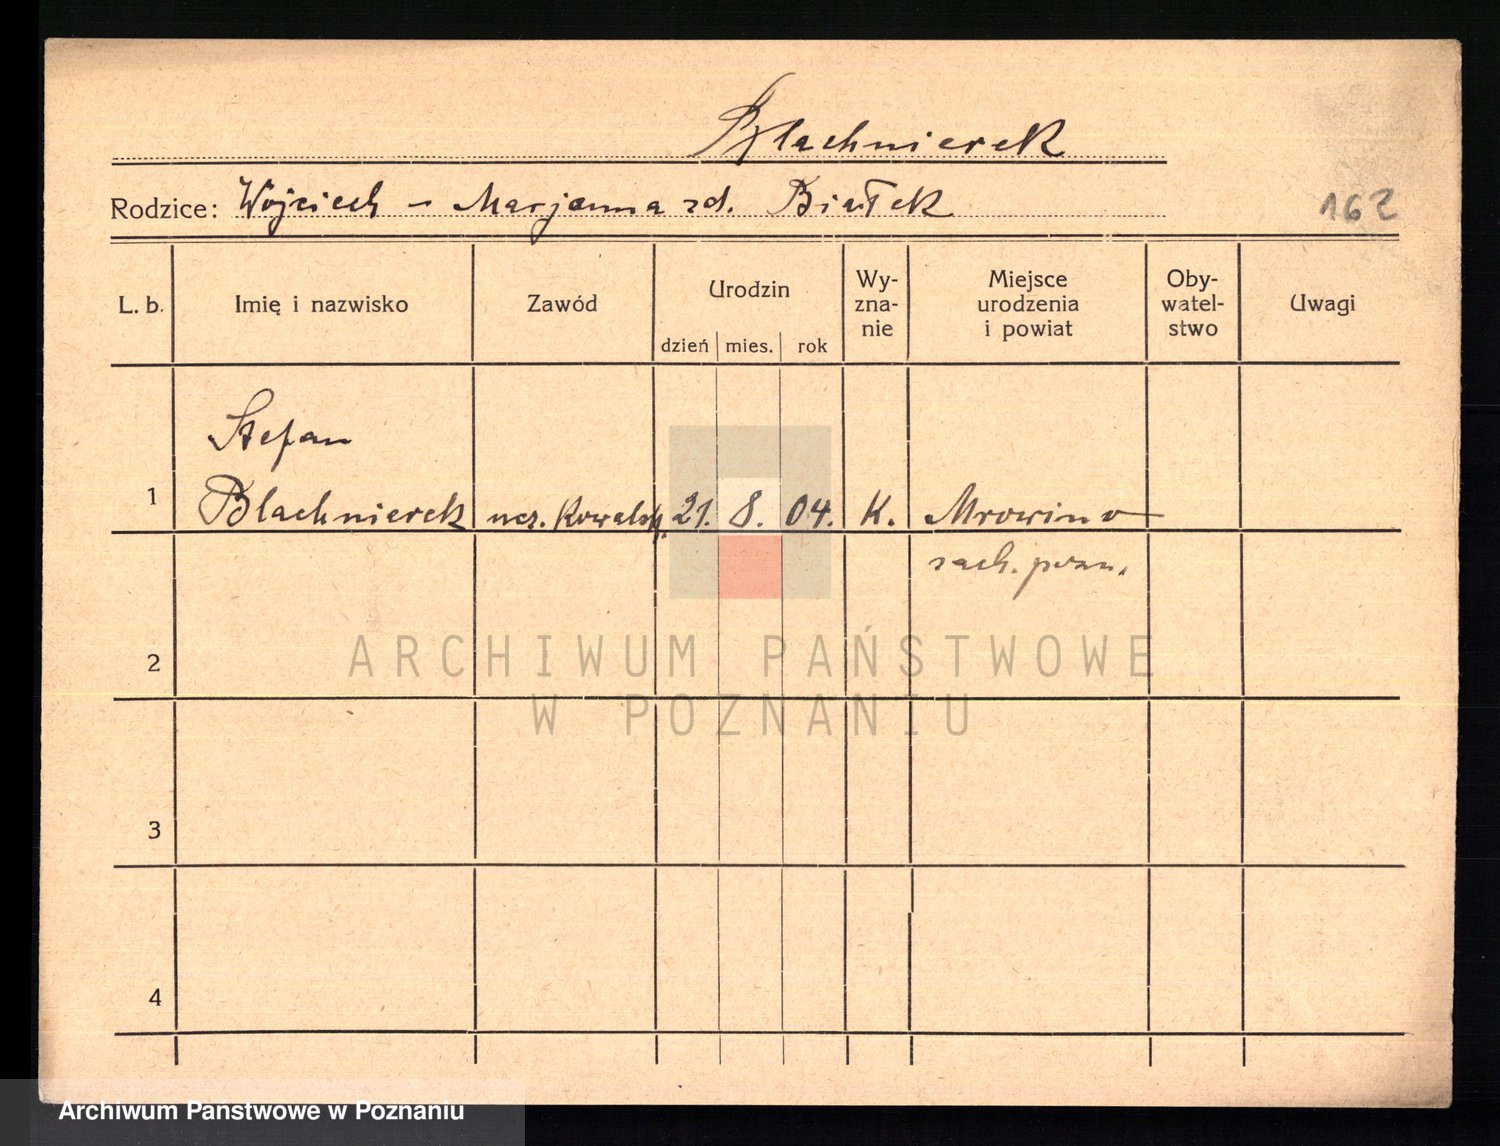 Blachnierek
Rodzice: Wojciech – Marjanna zd. Białek
162
L. b. Imię i nazwisko Zawód Urodzin Wy-zna-nie Miejsce urodzenia i powiat Oby-watel-stwo Uwagi
dzień mies. rok
Stefan
1 Blachnierek ucz. Kowalsk. 21. 8. 04. K. Mrowino
zach. pozn.
2
3
4
ARCHIWUM PAŃSTWOWE
W POZNANIU
Archiwum Państwowe w Poznaniu